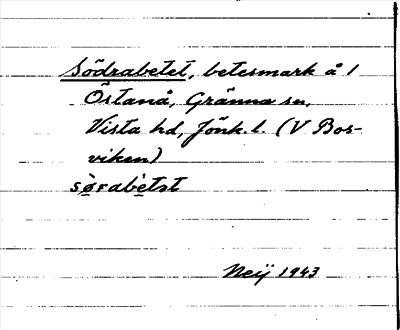 Södrabetet, betesmark å 1
Östanå, Gränna sn,
Vista hd, Jönk. l. (V Bos-
viken)
sø̀rabetət
Neij 1943